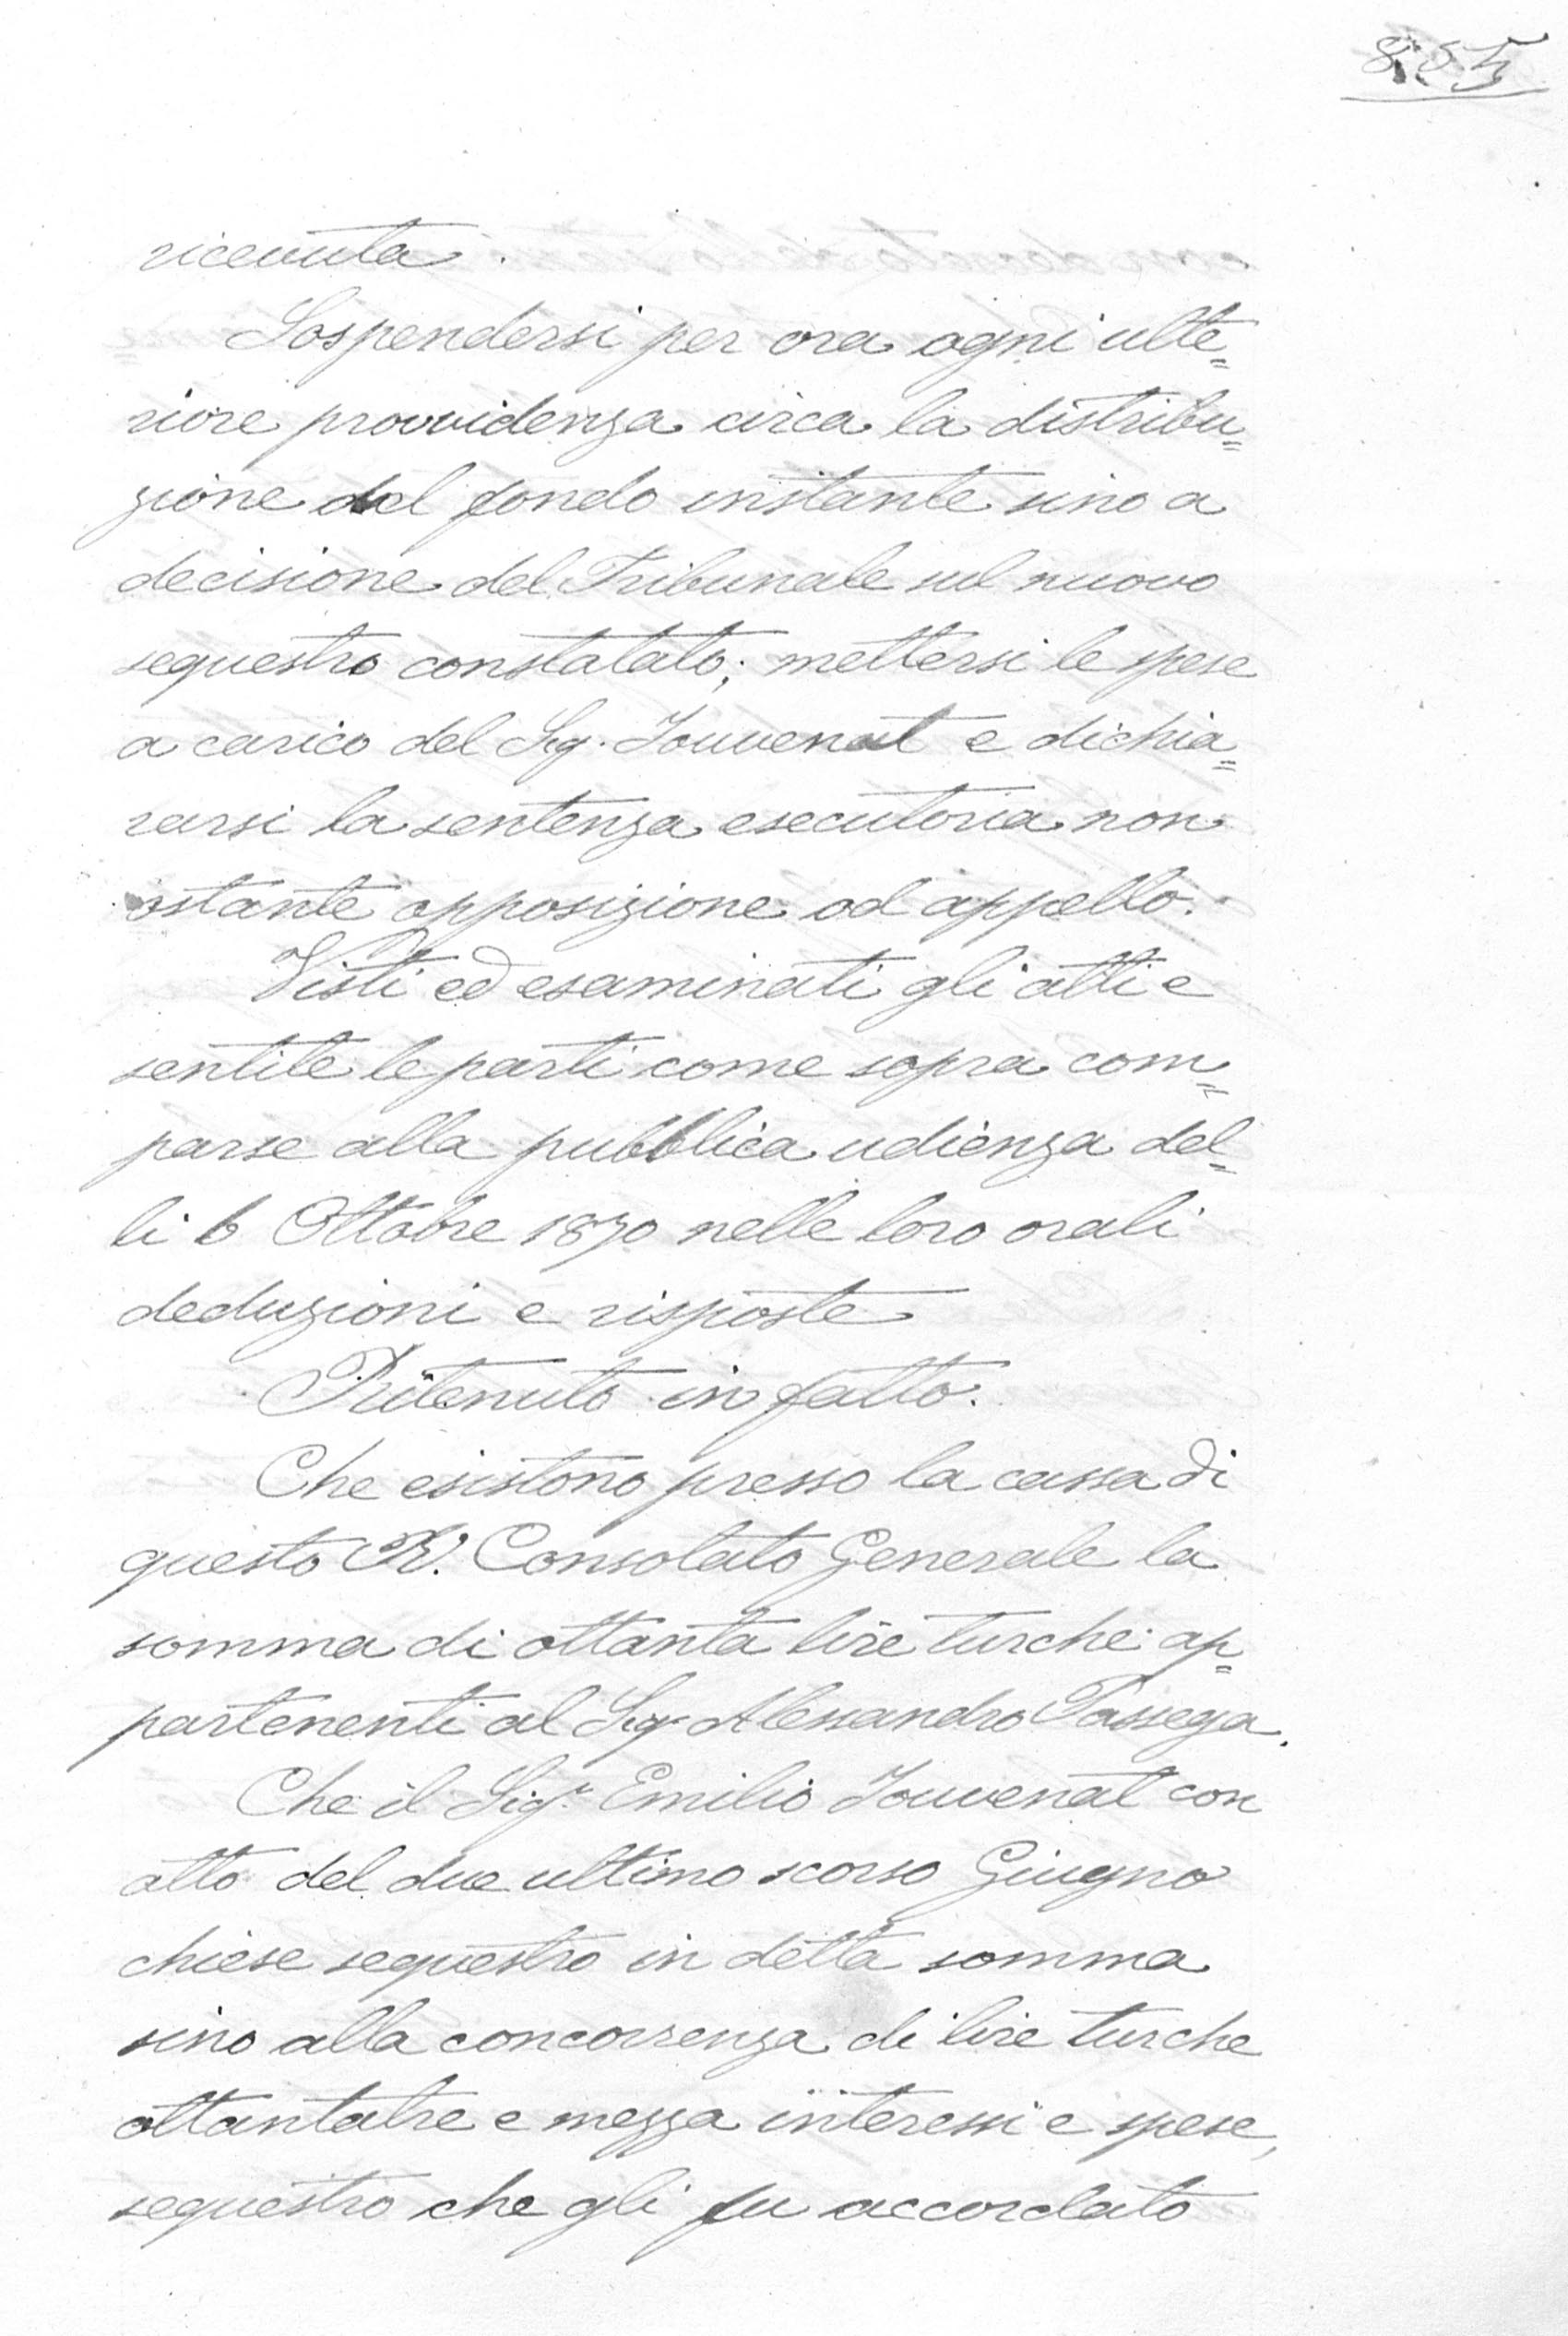 855
ricevuta.
Sospendersi per ora ogni ulte=
riore provvidenza circa la distribu=
zione del fondo instante sino a
decisione del Tribunale sul nuovo
sequestro constatato; mettersi le spese
a carico del Sig. Jouvenat e dichia=
rarsi la sentenza esecutoria non
ostante opposizione od appello.
Visti ed esaminati gli atti e
sentite le parti come sopra com=
parse alla pubblica udienza del=
li 6 Ottobre 1870 nelle loro orali
deduzioni e risposte
Ritenuto in fatto.
Che esistono presso la cassa di
questo R. Consolato Generale la
somma di ottanta lire turche ap=
partenenti al Sigr Alessandro Passega.
Che il Sigr. Emilio Jouvenat con
atto del due ultimo scorso Giugno
chiese sequestro in detta somma
sino alla concorrenza di lire turche
ottantatre e mezza interessi e spese,
sequestro che gli fu accordato